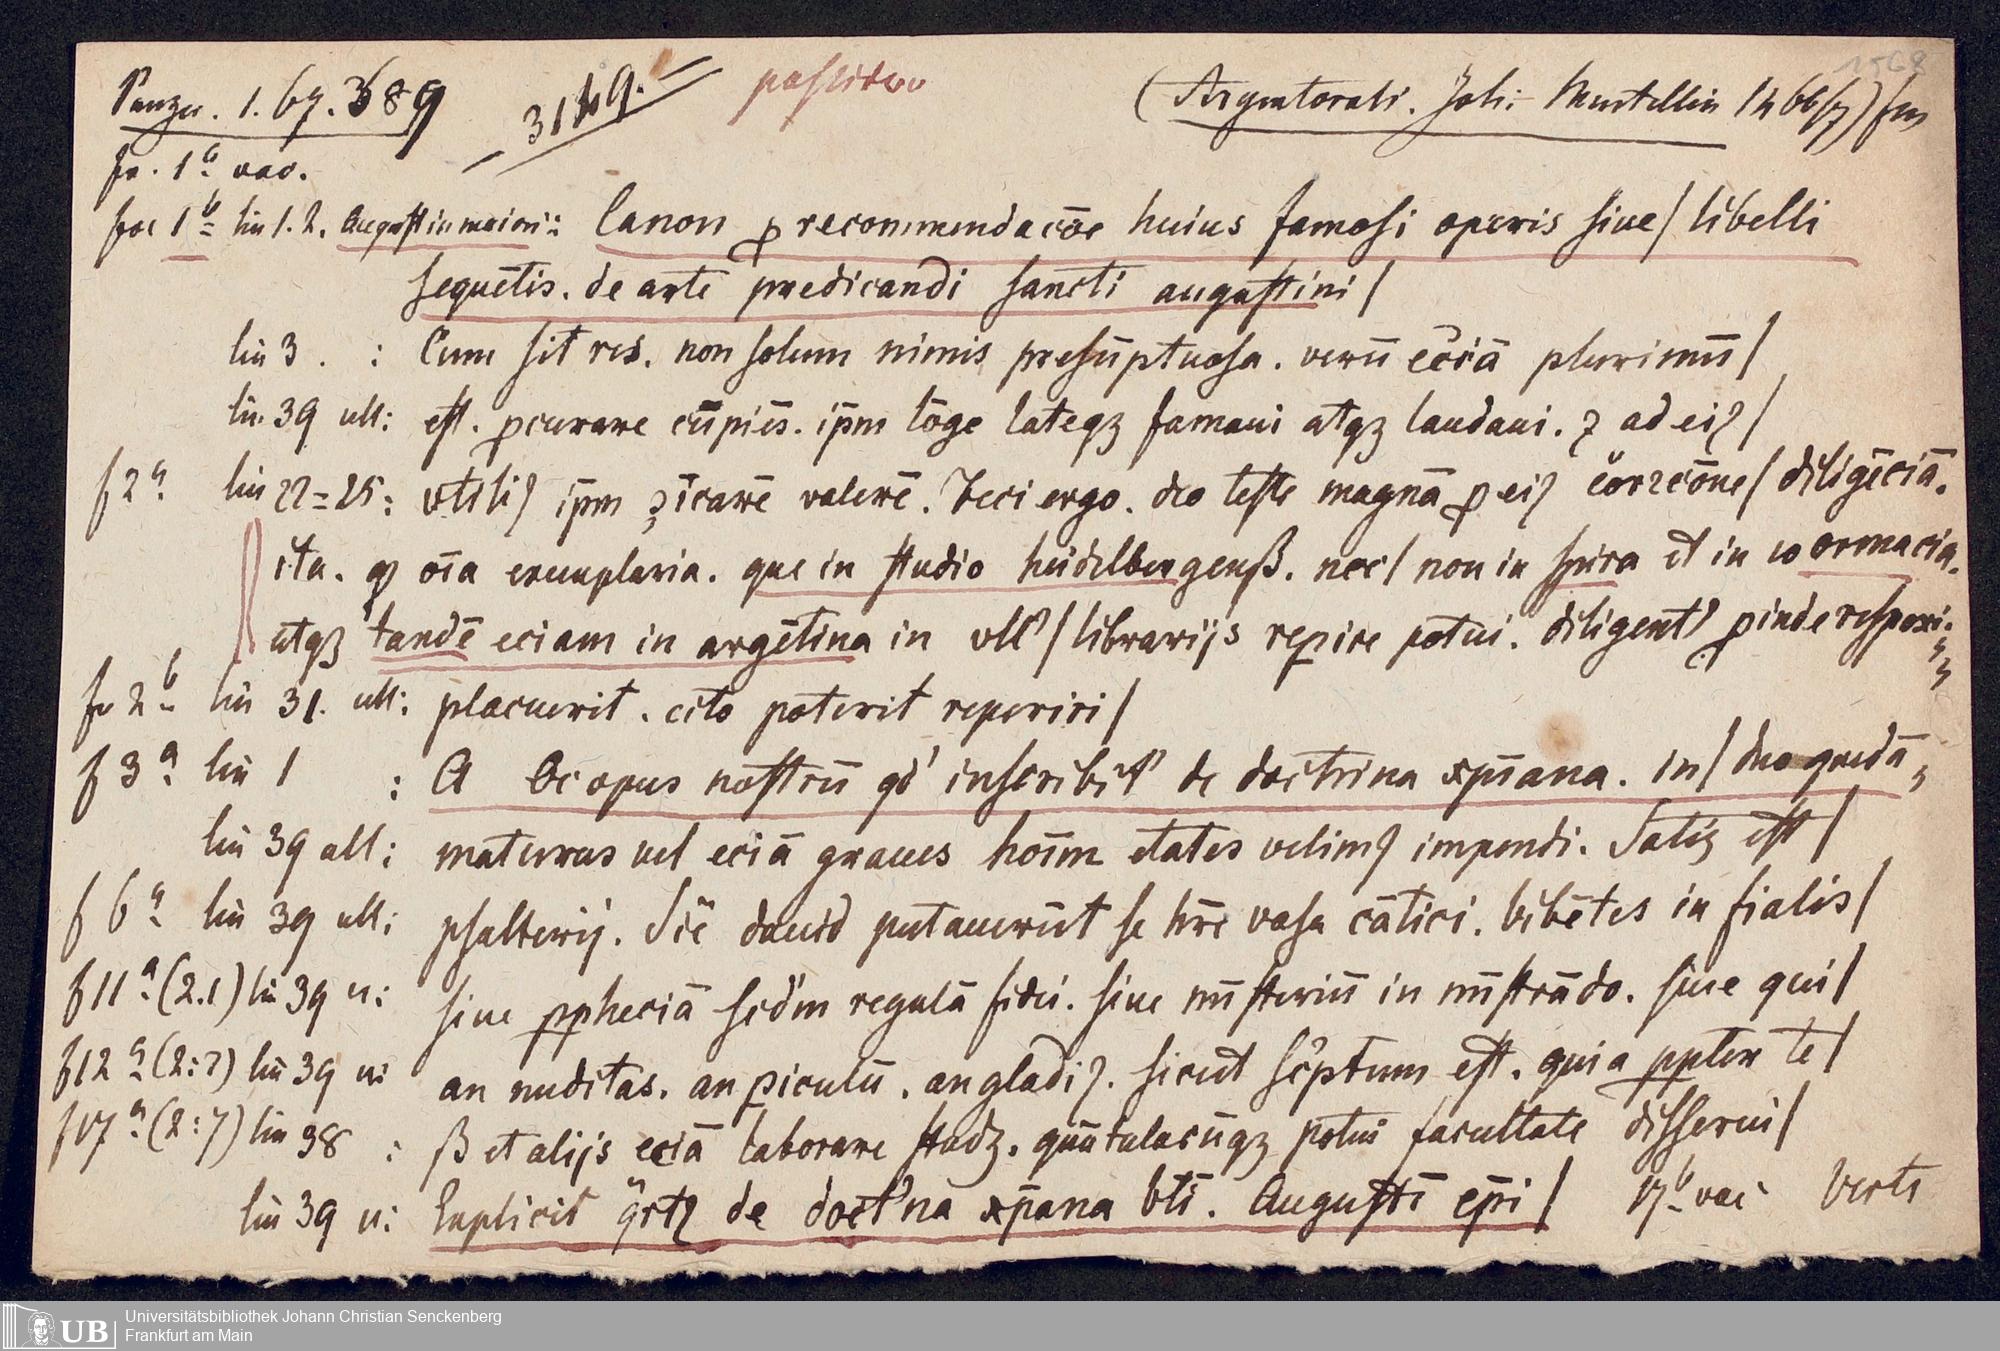 Panzer. 1. 67. 389
3149.
(Argentorati. Joh: Mentellin 1466/67) fm
1568
fo. 1ª vac.
fol 1b lin 1.2. Canon ꝓ recommendacōe huius famosi operis siue/ libelli
sequētis. de arte predicandi sancti augustini/
lin 3 . : Cum sit res. non solum nimis presūptuosa. verū eciā plurimū/
lin. 39 ult: est. ꝓcurare cūpiēs. ip̄m lōge lateqꝫ famaui atqꝫ laudaui. ⁊ ad eiꝰ/
f 2ª lin 22=25: vtiliꝰ ip̄m ꝯīcarē valerē. Feci ergo. deo teste magnā ꝓ eiꝰ correcōne/ diligēciā.
ita. ꝙ oīa exemplaria. que in studio heidelbergenß. nec/ non in spira et in wormacia.
atqꝫ tandē eciam in argētina in vll'/ librarijs reꝑire potui. diligent' ꝓinde respexi.
fo 2b lin 31. ult: placuerit. cito poterit reperiri/
f 3ª lin 1 : A Oc opus nostrū qd' inscribit' de doctrina xp̄iana. in/ duo quedā
lin 39 ult: maturas vel eciā graues hoīm etates velimꝰ impendi. Satiꝫ est/
f 6ª lin 39 ult: psalterij. Sic dauid putauerūt se hr̄e vasa cātici. bibētes in fialis/
f 11ª (2.1) lin 39 u: siue ꝓpheciā scd'm regulā fidei. siue mīsteriū in mīstrādo. siue qui/
f 12ª (2:2) lin 39 u: an nuditas. an ꝑiculū. an gladiꝰ. sicut sc'ptum est. quia ꝓpter te/
f 17ª (2:7) lin 38 : ß et alijs eciā laborare studꝫ. quātulacūqꝫ potui facultate disserui/
lin 39 u: Explicit q̈rtꝰ de doct'na xp̄ana bt̄i. Augustī ep̄i/ 17b vac Verte
Universitätsbibliothek Johann Christian Senckenberg
UB Frankfurt am Main